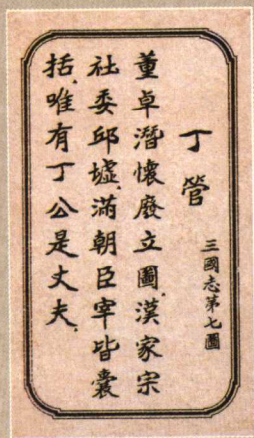 丁管
三國志第七圖
董卓潛懷廢立圖漢家宗
社委邱墟滿朝臣宰皆囊
括唯有丁公是丈夫